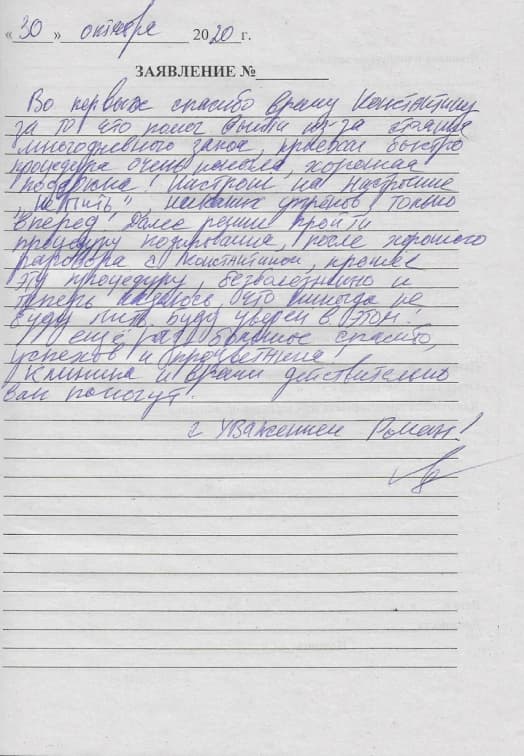 « 30 » октября 2020 г.
ЗАЯВЛЕНИЕ №
Во первых спасибо врачу Константину
за то что помог выйти из-за
многодневного запоя, провели быстро
процедура очень помогла, хорошая
поддержка! Настрой на настроение
„не пить", никаких упрёков только
вперёд! Далее решил пройти
процедуру кодирования, после хорошего
разговора с Константином, прошёл
эту процедуру, безболезненно и
теперь надеюсь, что никогда не
буду пить, буду уверен в этом!
ещё раз большое спасибо,
успехов и процветания!
Клиника и врачи действительно
вам помогут!
с Уважением Роман!